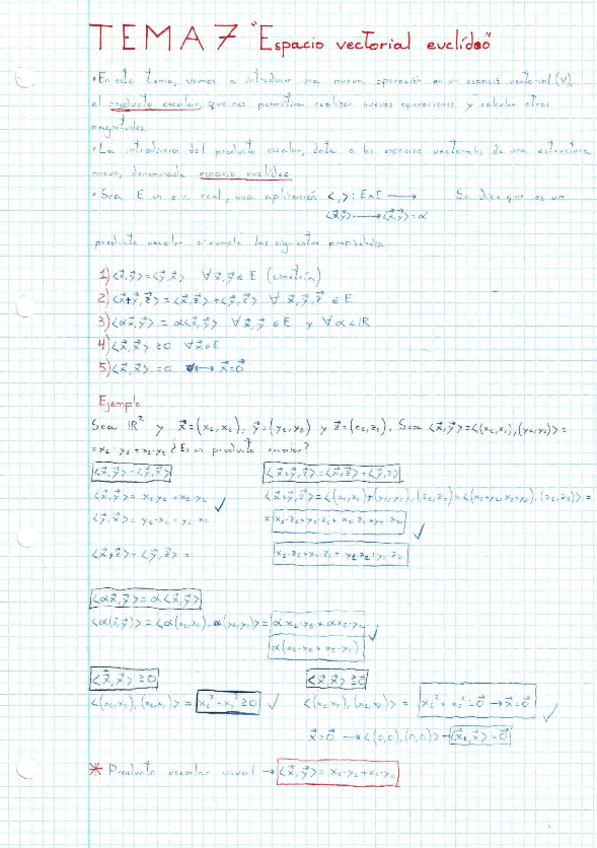 TEMA 7 "Espacio vectorial euclídeo"
• En este tema, vamos a introducir una nueva operación en un espacio vectorial (V),
el producto escalar, que nos permitira realizar nuevas operaciones y calcular otras
magnitudes.
• La introducion del producto escalar, dota a los espacios vectoriales de una estructura
nueva, denominada espacio euclídeo
• Sea E un e.v. real, una aplicación <,>: ExE → Se dice que es un
<x⃗,y⃗> → <x⃗,y⃗>=α
producto escalar si cumple las siguientes propiedades
1) <x⃗,y⃗>=<y⃗,x⃗> ∀x⃗,y⃗ ∈ E (simetría)
2) <x⃗+y⃗,z⃗>=<x⃗,z⃗>+<y⃗,z⃗> ∀ x⃗,y⃗,z⃗ ∈ E
3) <αx⃗,y⃗> = α<x⃗,y⃗> ∀x⃗,y⃗ ∈ E y ∀α∈ℝ
4) <x⃗,x⃗> ≥0 ∀x⃗∈E
5) <x⃗,x⃗> =0 ⟷ x⃗=0⃗
Ejemplo
Sea ℝ² y x⃗=(x₁,x₂), y⃗=(y₁,y₂) y z⃗=(z₁,z₂). Sea <x⃗,y⃗>=<(x₁,x₂),(y₁,y₂)>=
=x₁·y₁+x₂·y₂ ¿Es un producto escalar?
<x⃗,y⃗>=<y⃗,x⃗> <x⃗+y⃗,z⃗>=<x⃗,z⃗>+<y⃗,z⃗>
<x⃗,y⃗>= x₁y₁+x₂y₂ ✓ <x⃗+y⃗,z⃗>=<(x₁,x₂)+(y₁,y₂),(z₁,z₂)>=<(x₁+y₁,x₂+y₂),(z₁,z₂)>=
<y⃗,x⃗>= y₁·x₁+y₂·x₂ =x₁·z₁+y₁·z₁+x₂·z₂+y₂·z₂ ✓
<x⃗,z⃗>+<y⃗,z⃗>= x₁·z₁+x₂·z₂+y₁·z₁+y₂·z₂
<αx⃗,y⃗>=α<x⃗,y⃗>
<α(x⃗,y⃗)>=<α(x₁,x₂),α(y₁,y₂)>= αx₁·y₁+αx₂·y₂ ✓
α(x₁·y₁+x₂·y₂)
<x⃗,x⃗>≥0 <x⃗,x⃗>≥0
<(x₁,x₂),(x₁,x₂)>= x₁²+x₂²≥0 ✓ <(x₁,x₂),(x₁,x₂)>= x₁²+x₂²=0⃗→x⃗=0⃗ ✓
x⃗=0⃗ →<(0,0),(0,0)>→<x⃗,x⃗>=0⃗
* Producto escalar usual → <x⃗,y⃗>=x₁·y₁+x₂·y₂